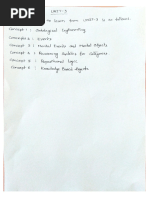 UNIT-3
to learn from UNIT-3 is as follows
Concept 1 : Ontological Engineering
Concept 2 : Events
Concept 3 : Mental Events and Mental Objects
Concept 4 : Reasoning Systems for Categories
Concept 5 : Propositional Logic
Concept 6 : Knowledge Based Agents